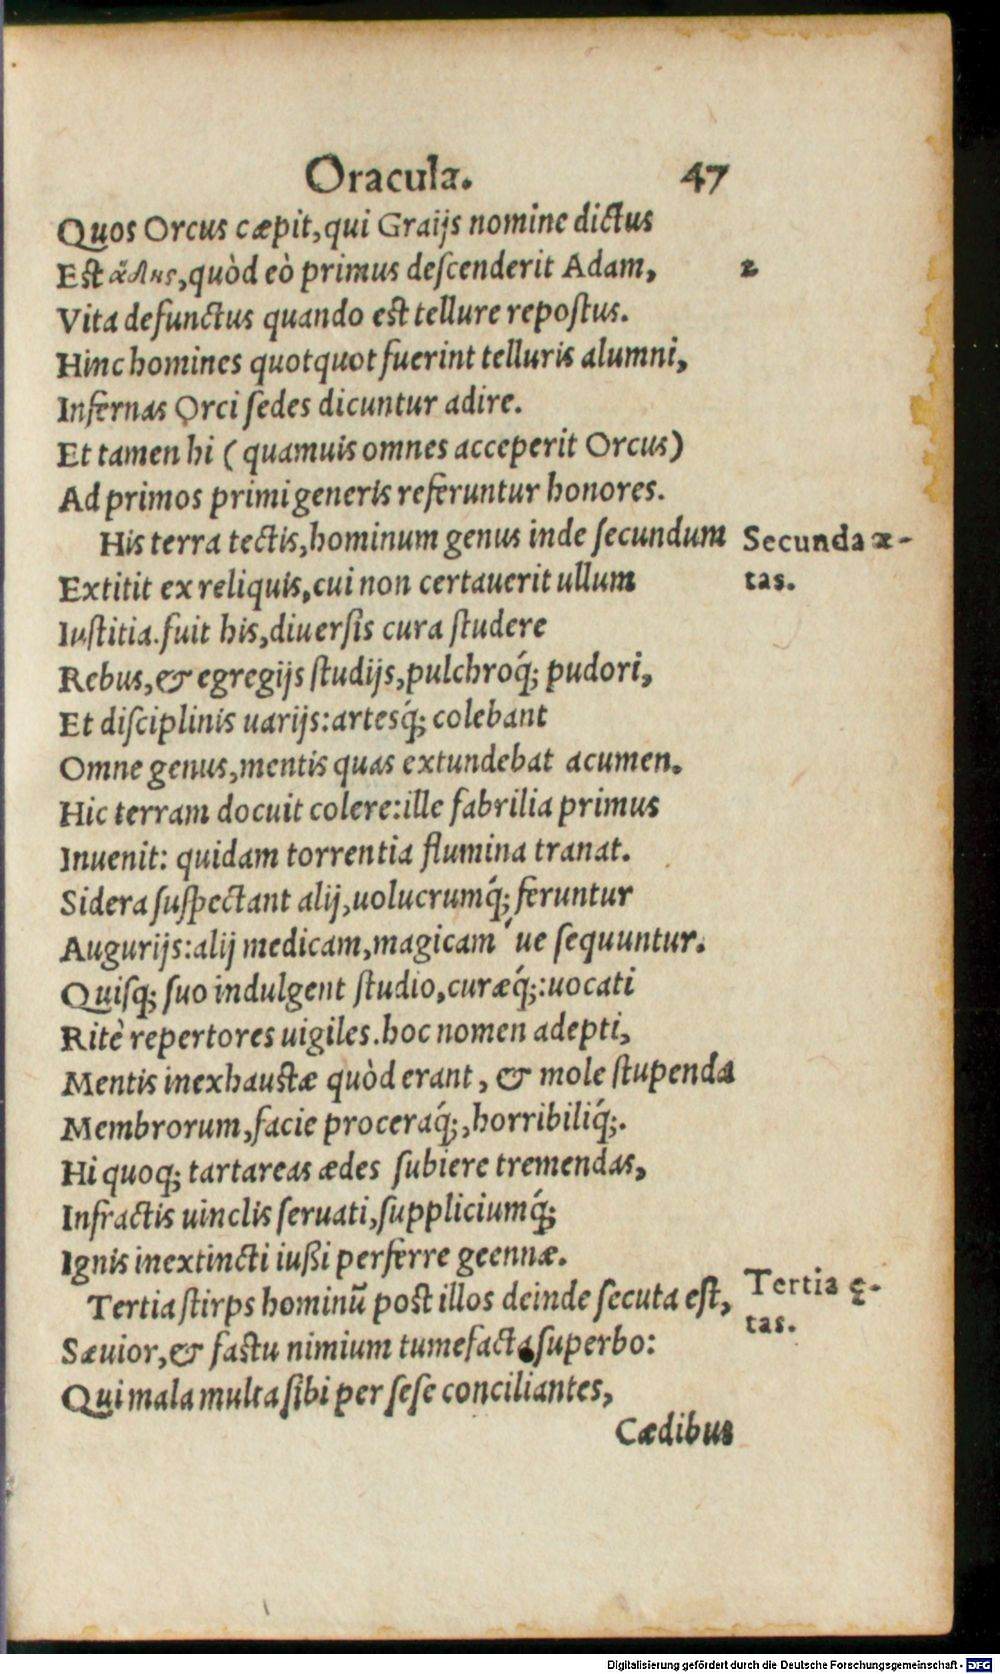 Oracula. 47
Quos Orcus cæpit, qui Graijs nomine dictus
Est ᾅδης, quòd eò primus descenderit Adam, 2
Vita defunctus quando est tellure repostus.
Hinc homines quotquot fuerint telluris alumni,
Infernas Orci sedes dicuntur adire.
Et tamen hi ( quamuis omnes acceperit Orcus)
Ad primos primi generis referuntur honores.
His terra tectis, hominum genus inde secundum Secunda æ-
Extitit ex reliquis, cui non certauerit ullum tas.
Iustitia. fuit his, diuersis cura studere
Rebus, & egregijs studijs, pulchroq́; pudori,
Et disciplinis uarijs: artesq́; colebant
Omne genus, mentis quas extundebat acumen.
Hic terram docuit colere: ille fabrilia primus
Inuenit: quidam torrentia flumina tranat.
Sidera suspectant alij, uolucrumq́; feruntur
Augurijs: alij medicam, magicam 'ue sequuntur.
Quisq; suo indulgent studio, curæq́;: uocati
Ritè repertores uigiles. hoc nomen adepti,
Mentis inexhaustæ quòd erant, & mole stupenda
Membrorum, facie proceraq́;, horribiliq́;.
Hi quoq; tartareas ædes subiere tremendas,
Infractis uinclis seruati, suppliciumq́;
Ignis inextincti iußi perferre geennæ.
Tertia stirps hominũ post illos deinde secuta est, Tertia ę-
Sæuior, & fastu nimium tumefacta superbo: tas.
Qui mala multa sibi per sese conciliantes,
Cædibus
Digitalisierung gefördert durch die Deutsche Forschungsgemeinschaft - DFG